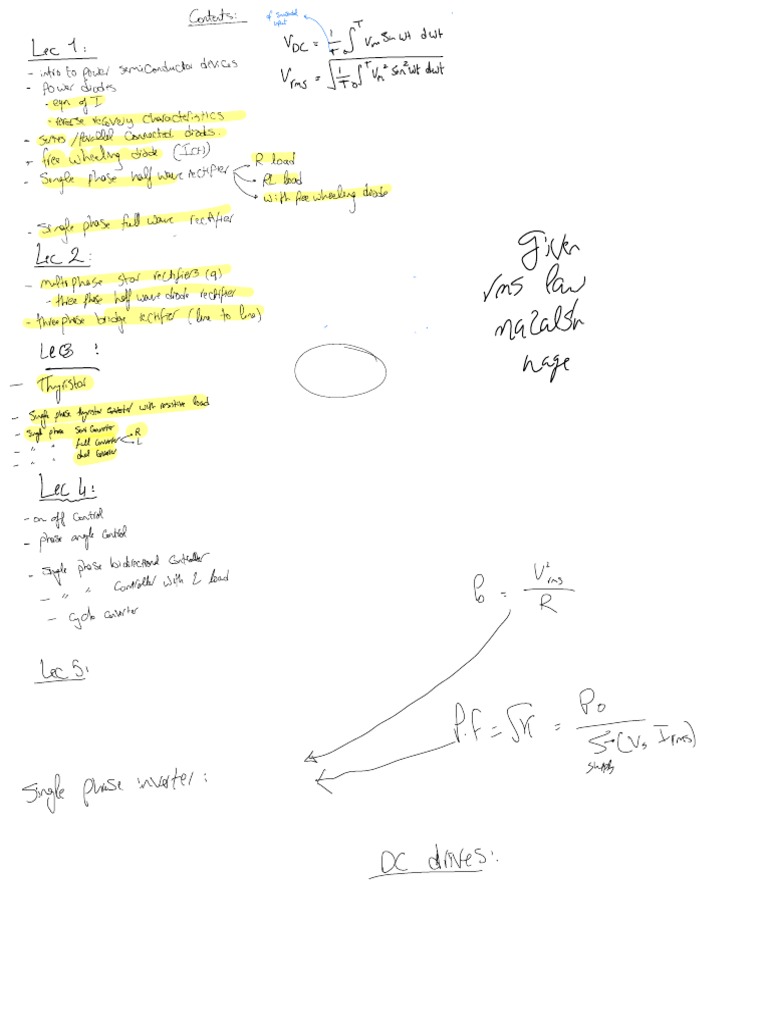 Contents:
of sinusoidal input
V_DC = 1/T ∫₀ᵀ Vm Sin wt dwt
Vrms = √(1/T ∫₀ᵀ Vm² Sin² wt dwt)
Lec 1:
- intro to power semiConductor devices
- Power diodes
- eqn of I
- reverse recovery characteristics
- series /Parallel Connected diodes.
- free wheeling diode
- Single phase half wave rectifier
R load
RL load
with free wheeling diode
- Single phase full wave rectifier
Lec 2:
- multiphase star rectifiers (q)
- three phase half wave diode rectifier
- three phase bridge rectifier (line to line)
Lec3 :
- Thyristor
- Single phase thyristor converter with resistive load
- Single phase Semi Converter
- " " full converter R L
- " " dual Converter
Lec 4:
- on off Control
- phase angle control
- Single phase bidirectional Controller
- " " Controller with L load
- cyclo converter
Lec 5:
Given
rms law
ma2alsh
nage
Po = V²rms / R
P.f = √K = Po / S (Vs Irms)
Single phase inverter:
DC drives: